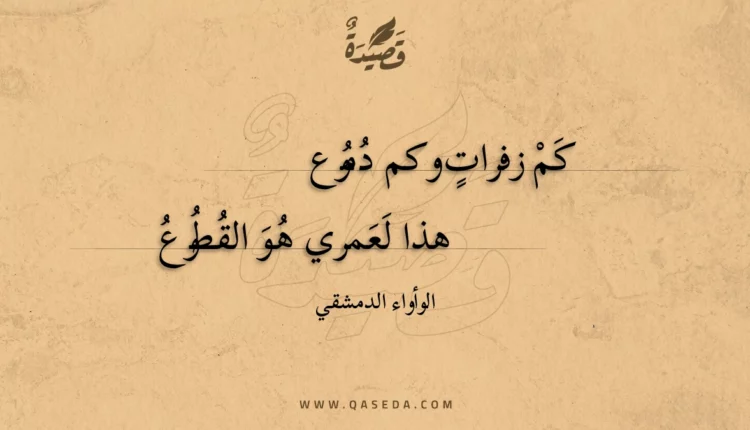 قَصِيدَةٌ
كَمْ زفراتٍ وكم دُمُوع
هذا لَعَمري هُوَ القُطُوعُ
الوأواء الدمشقي
WWW.QASEDA.COM